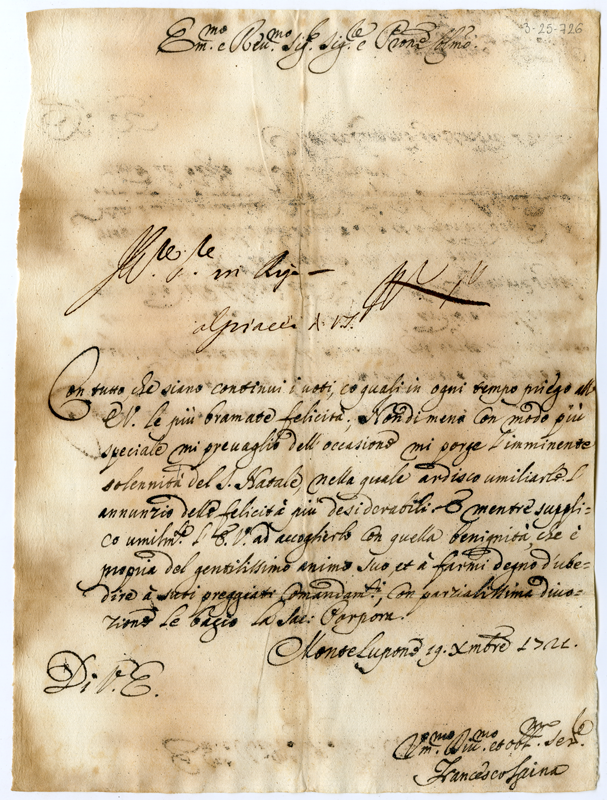 3-25-726
Em.mo e Rev.mo Sig.r Sig.re e Pron.e Col.mo
Con tutto che siano continui i voti, co quali in ogni tempo priego all
E.V. le più bramate felicità, Nondimeno con modo più
speciale mi prevaglio dell'occasione mi porge l'imminente
solennità del S. Natale, nella quale ardisco umiliarle l'
annunzio delle felicità più desiderabili. E mentre suppli-
co umilm.te l'E.V. ad accoglierlo con quella benignità, che è
propria del gentilissimo animo suo et à farmi degno d'ube-
dire à suoi preggiati Comandam.ti, con parzialissima divo-
zione le bagio la Sac: Porpora.
Monte Lupone 19. Xmbre 1721.
Di V.E.
Um.mo Div.mo et obb.mo Ser.e
Francesco Spina